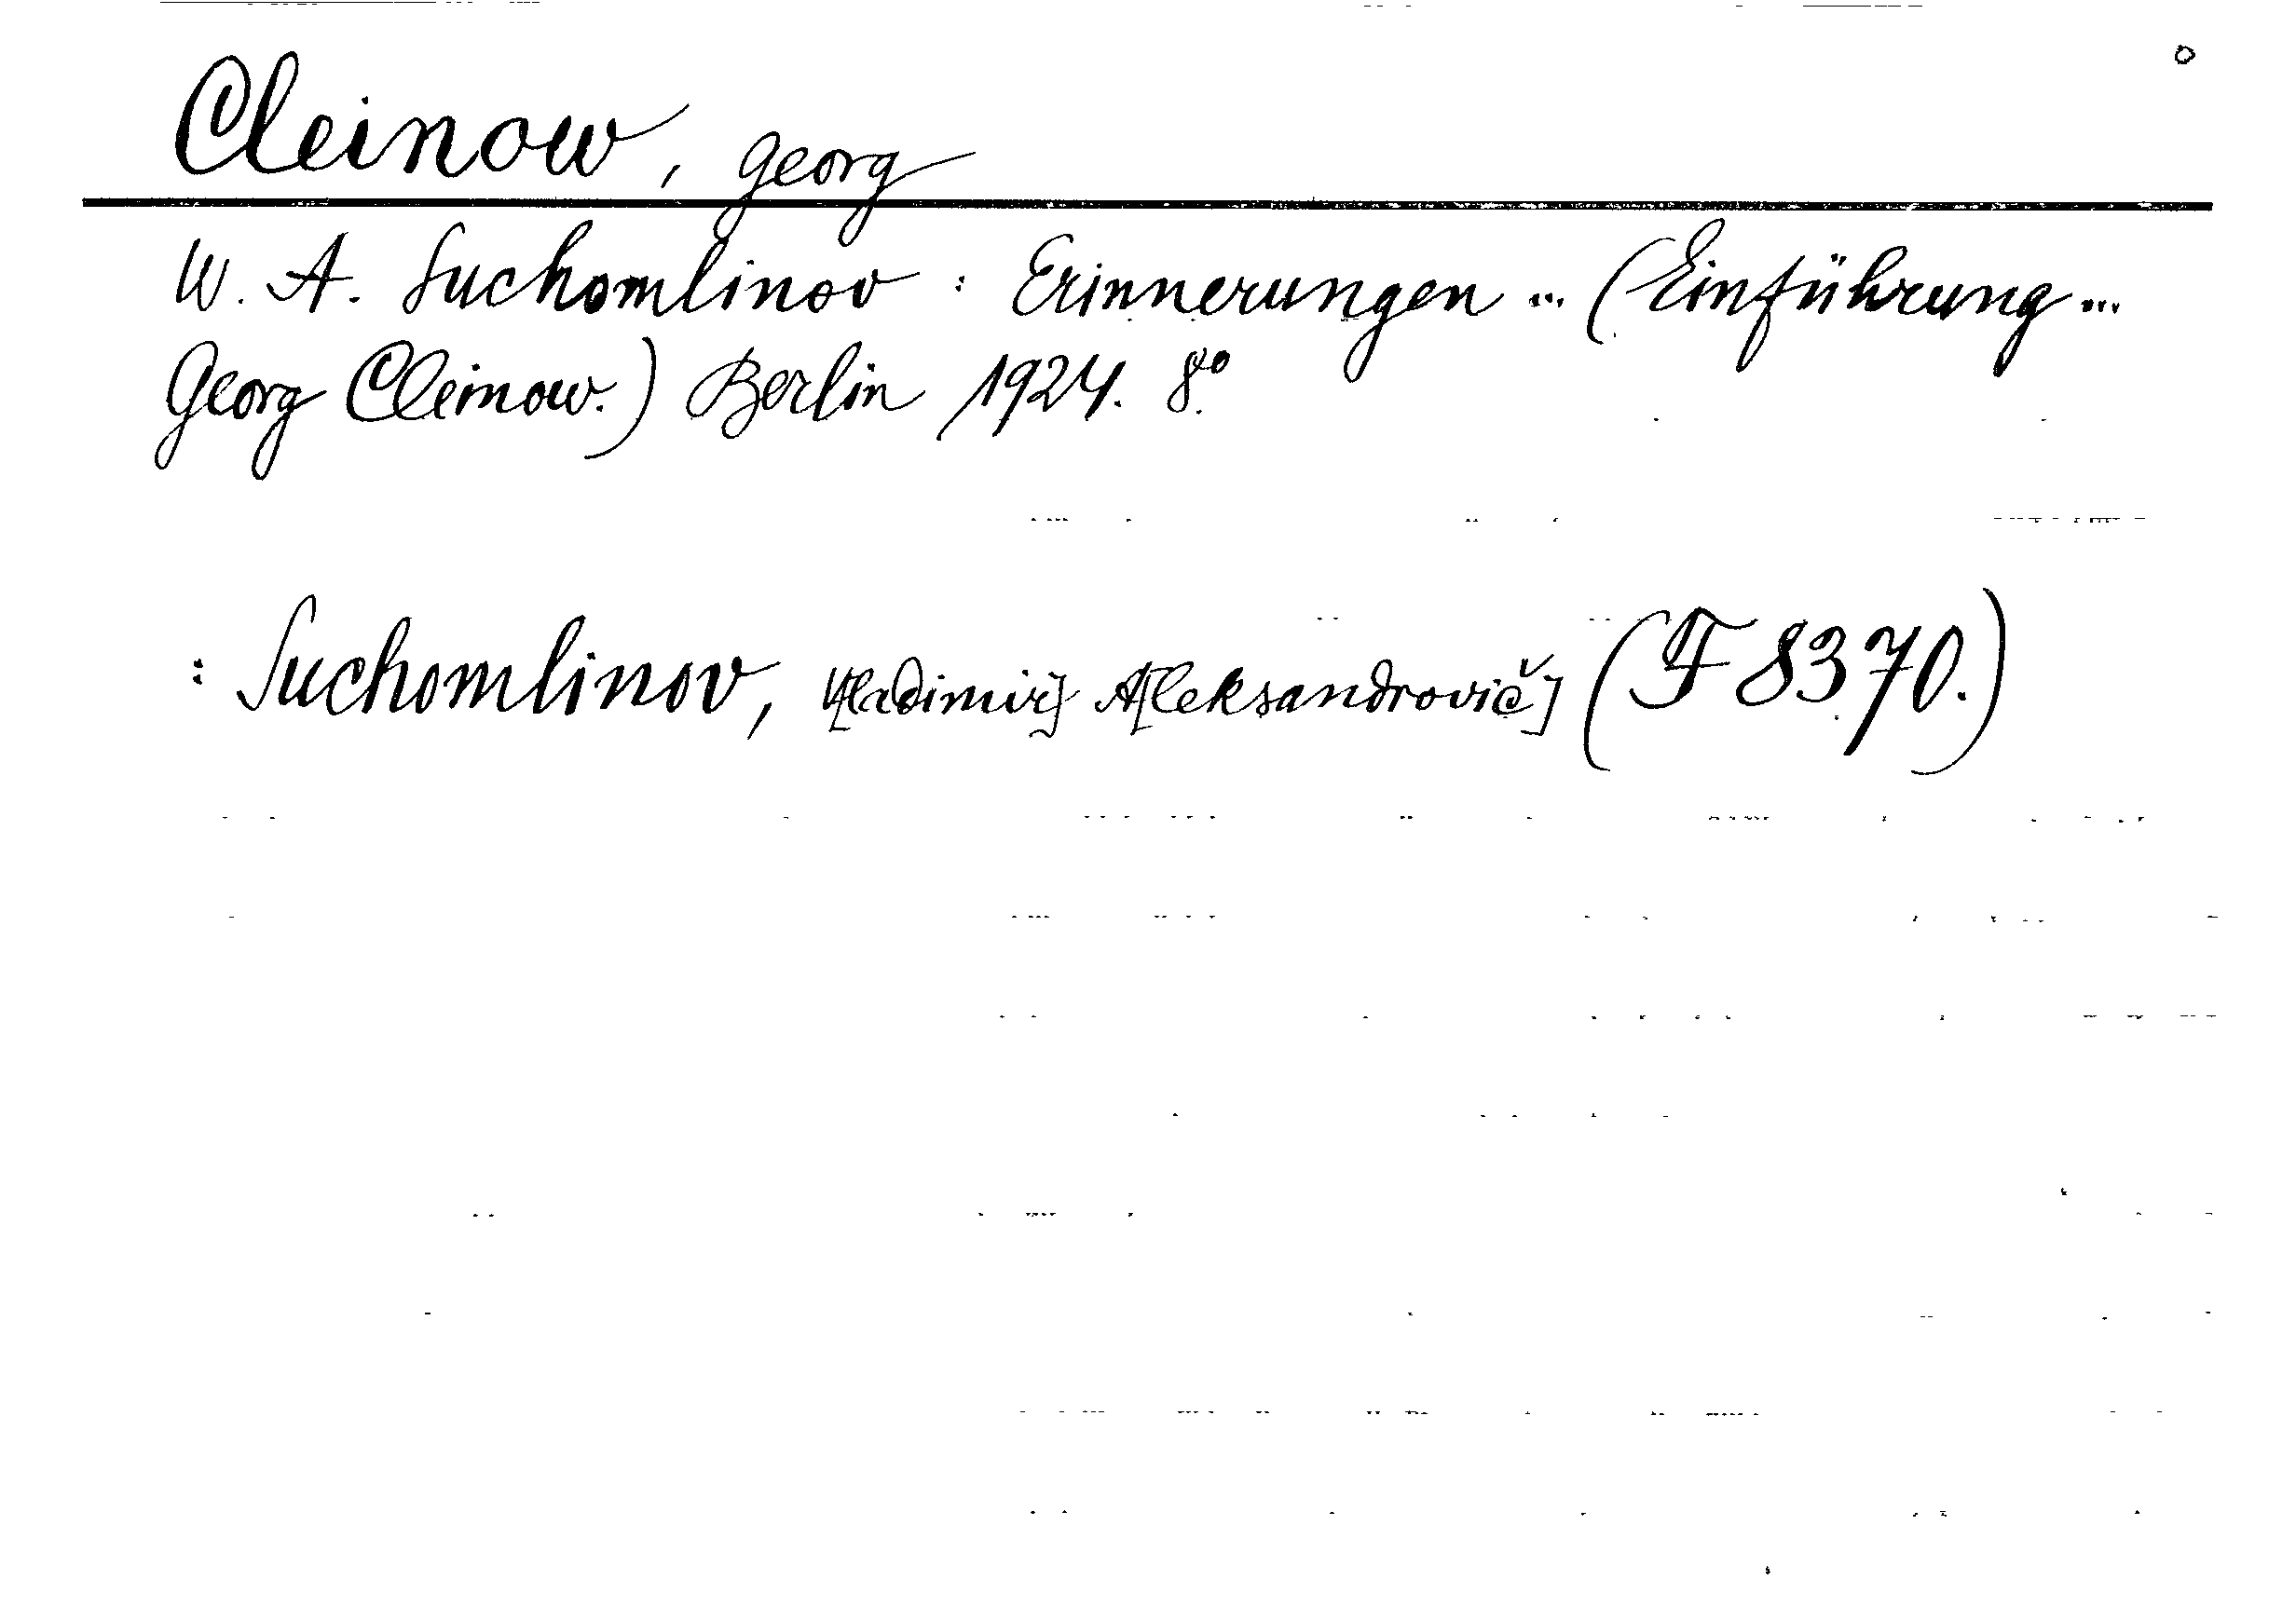 Cleinow, Georg
W. A. Suchomlinov : Erinnerungen ... (Einführung ...
Georg Cleinow.) Berlin 1924. 8°
: Suchomlinov, V[ladimir] A[leksandrovič] (F 8370.)